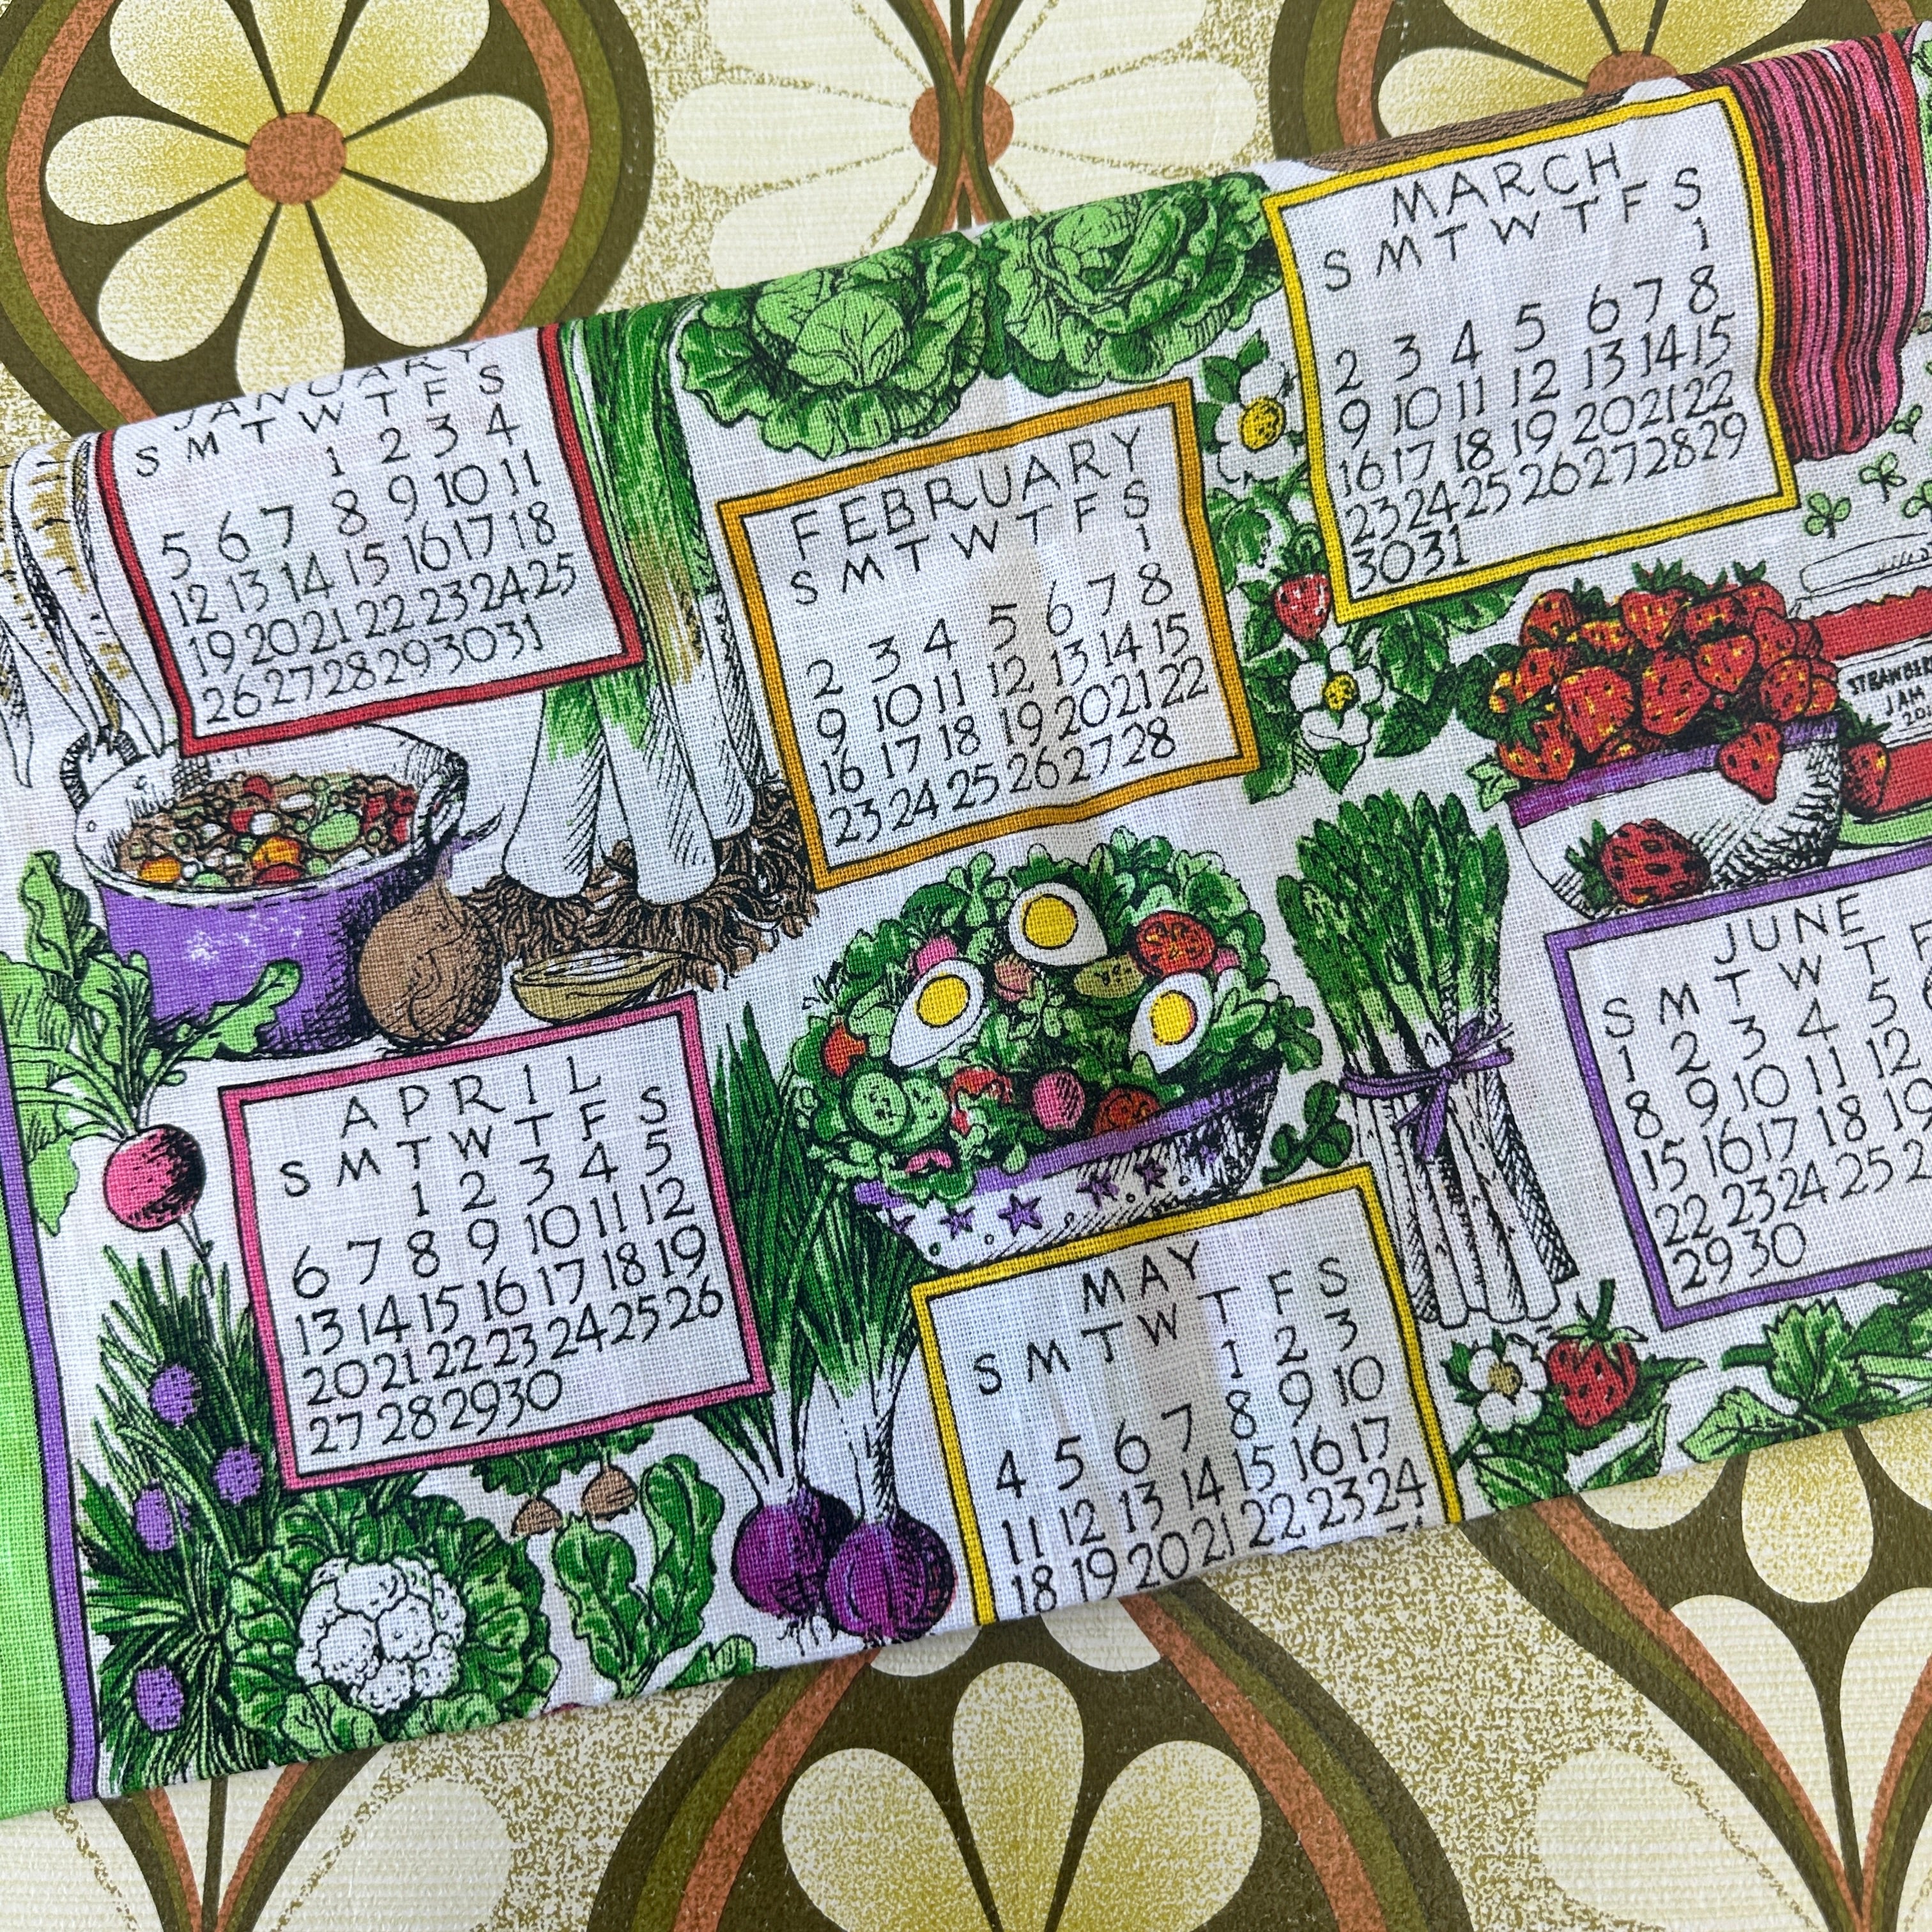 JANUARY
S M T W T F S
1 2 3 4
5 6 7 8 9 10 11
12 13 14 15 16 17 18
19 20 21 22 23 24 25
26 27 28 29 30 31
FEBRUARY
S M T W T F S
1
2 3 4 5 6 7 8
9 10 11 12 13 14 15
16 17 18 19 20 21 22
23 24 25 26 27 28
MARCH
S M T W T F S
1
2 3 4 5 6 7 8
9 10 11 12 13 14 15
16 17 18 19 20 21 22
23 24 25 26 27 28 29
30 31
STRAWBE
JAM
APRIL
S M T W T F S
1 2 3 4 5
6 7 8 9 10 11 12
13 14 15 16 17 18 19
20 21 22 23 24 25 26
27 28 29 30
MAY
S M T W T F S
1 2 3
4 5 6 7 8 9 10
11 12 13 14 15 16 17
18 19 20 21 22 23 24
JUNE
S M T W T F
1 2 3 4 5
8 9 10 11 12
15 16 17 18 19
22 23 24 25
29 30